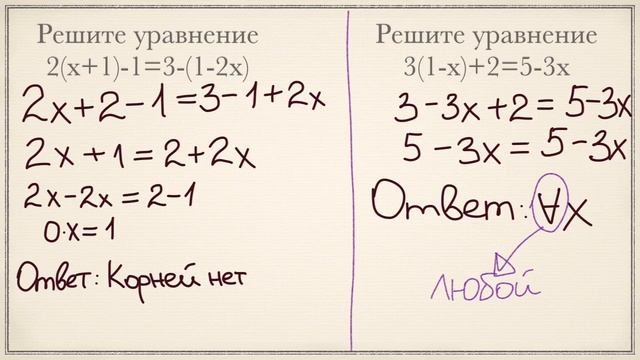 Решите уравнение
2(x+1)-1=3-(1-2x)
2x+2-1=3-1+2x
2x+1=2+2x
2x-2x=2-1
0·x=1
Ответ: Корней нет
Решите уравнение
3(1-x)+2=5-3x
3-3x+2=5-3x
5-3x=5-3x
Ответ: ∀x
ЛЮБОЙ